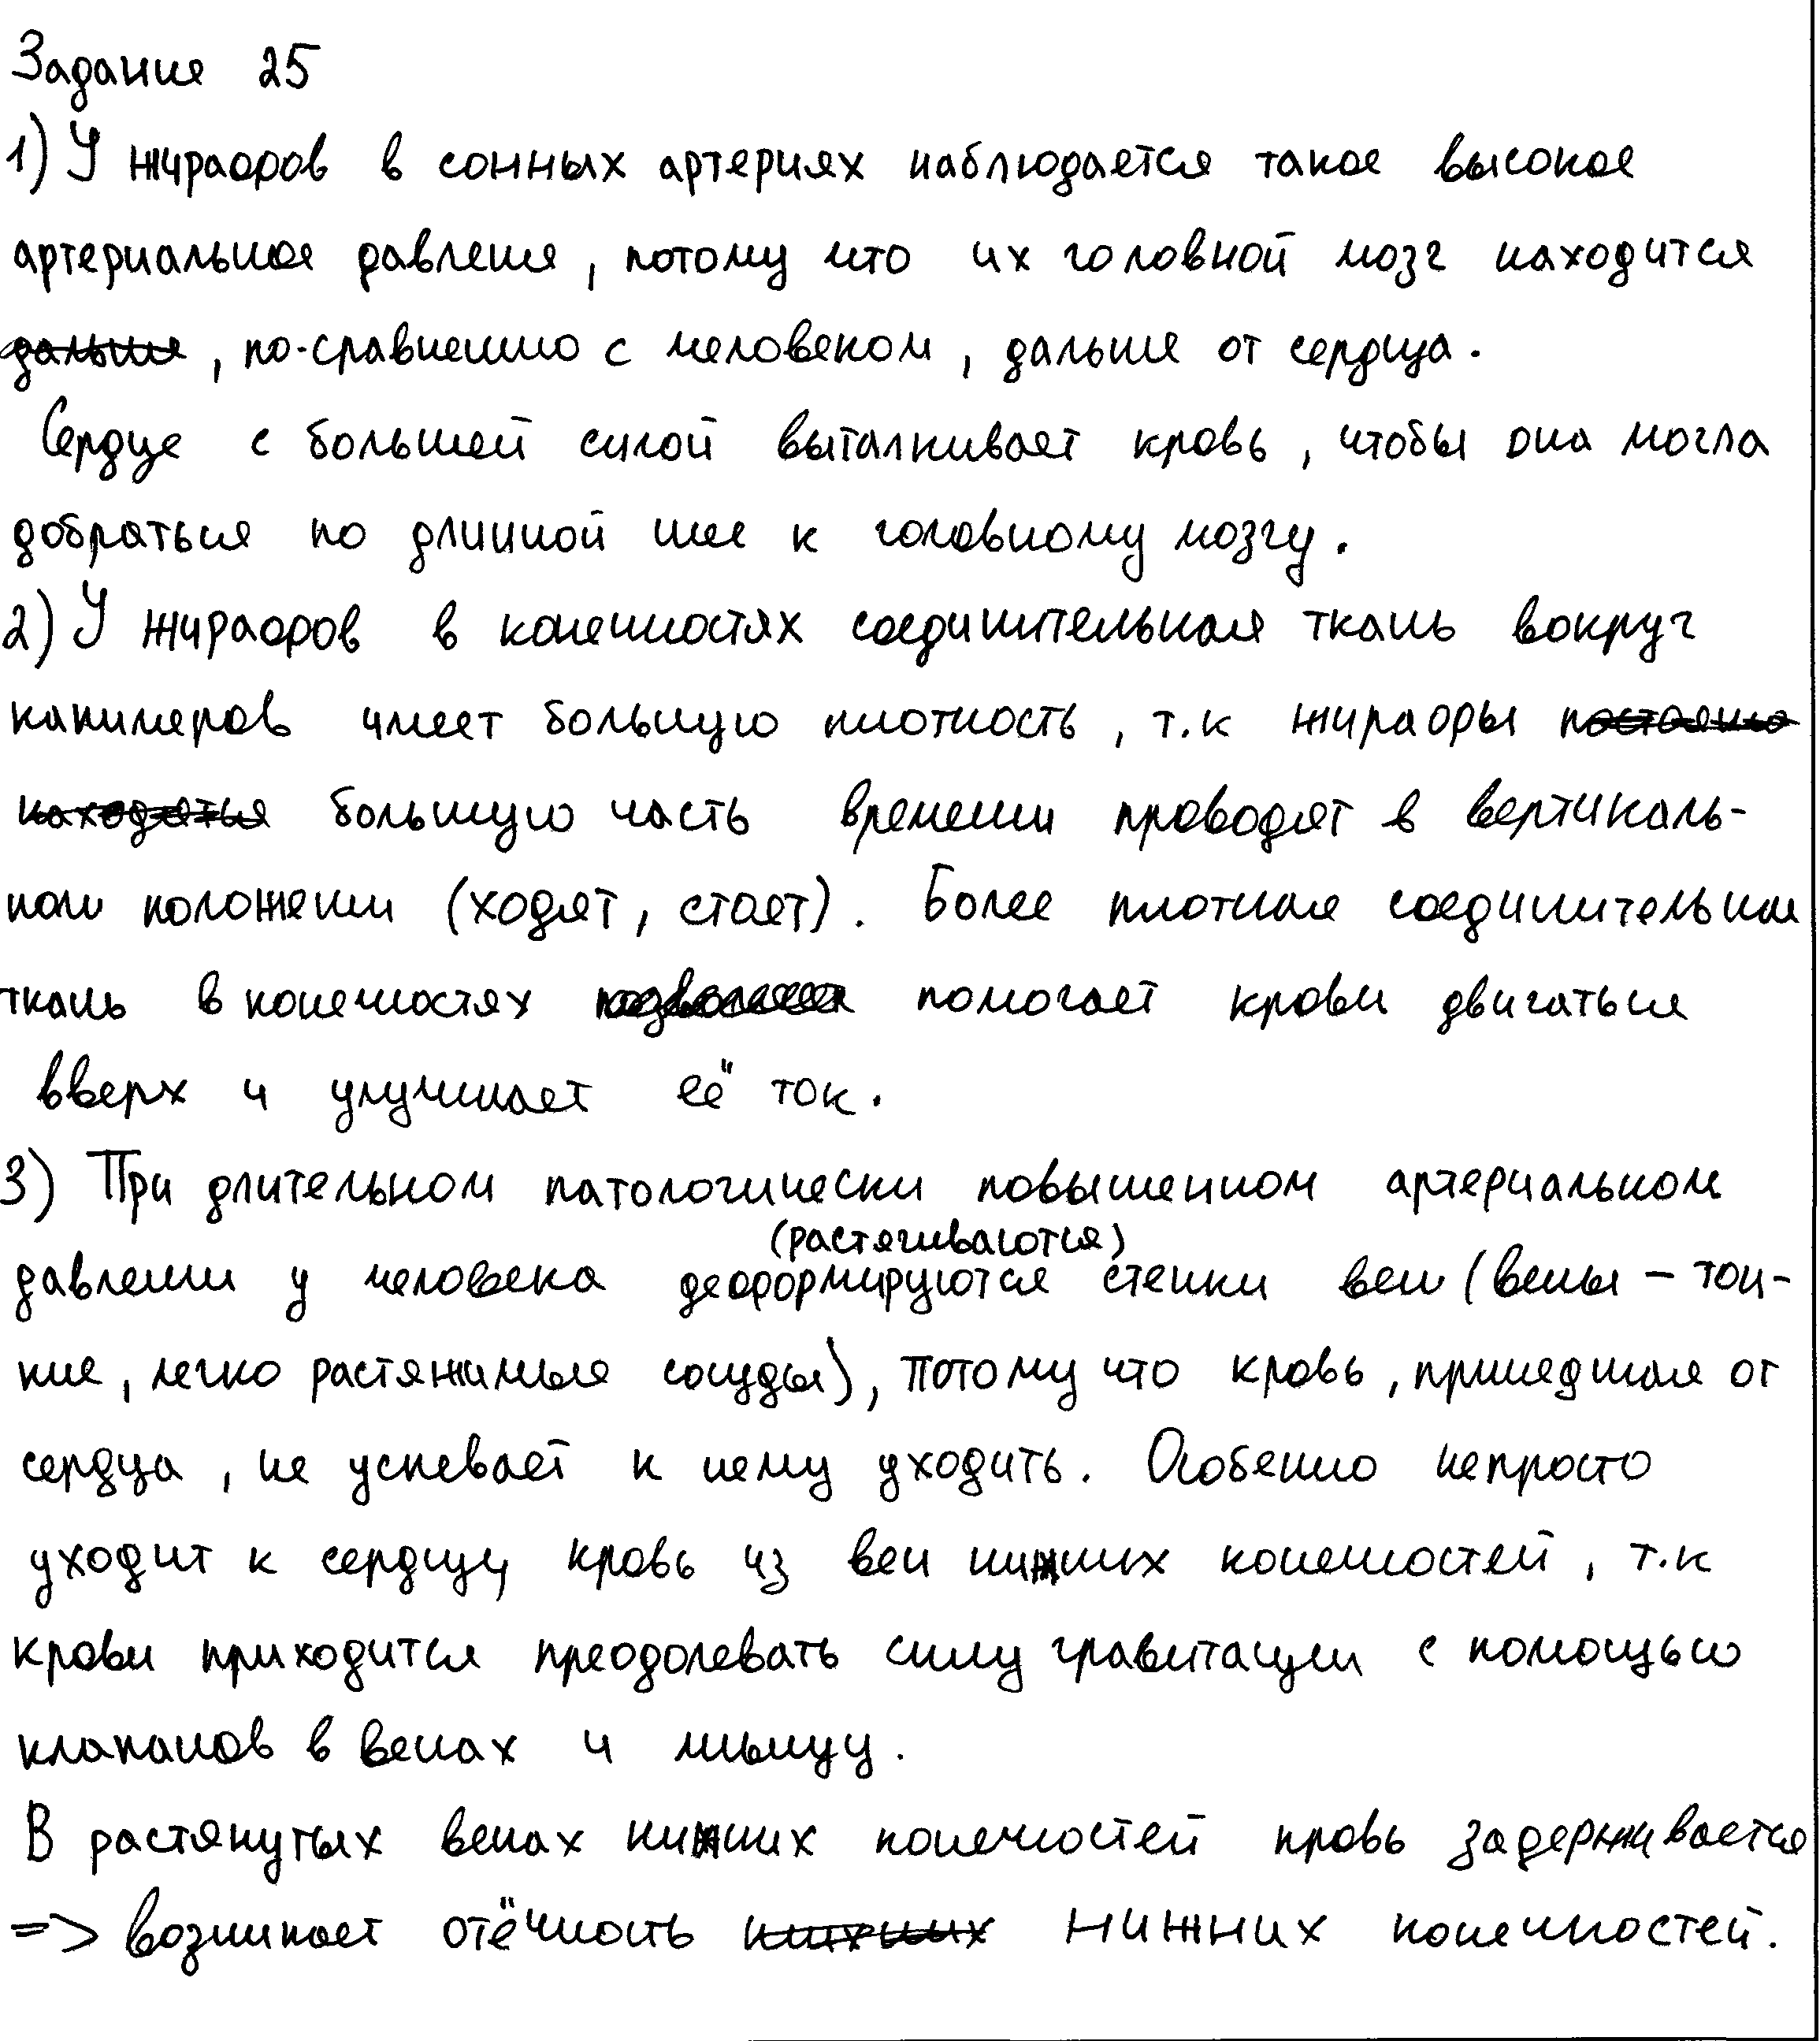 Задание 25
1) У жирафов в сонных артериях наблюдается такое высокое
артериальное давление, потому что их головной мозг находится
дальше, по-сравнению с человеком, дальше от сердца.
Сердце с большей силой выталкивает кровь, чтобы она могла
добраться по длинной шее к головному мозгу.
2) У жирафов в конечностях соединительная ткань вокруг
капиляров имеет большую плотность, т.к жирафы постоянно
находяться большую часть времени проводят в вертикаль-
ном положении (ходят, стоят). Более плотная соединительная
ткань в конечностях позволяет помогает крови двигаться
вверх и улучшает её ток.
3) При длительном патологически повышенном артериальном
(растягиваются)
давлении у человека деформируются стенки вен (вены - тон-
кие, легко растяжимые сосуды), потому что кровь, пришедшая от
сердца, не успевает к нему уходить. Особенно непросто
уходит к сердцу кровь из вен нижних конечностей, т.к
крови приходится преодолевать силу гравитации с помощью
клапанов в венах и мышц.
В растянутых венах нижних конечностей кровь задерживается
=> возникает отёчность нижних нижних конечностей.